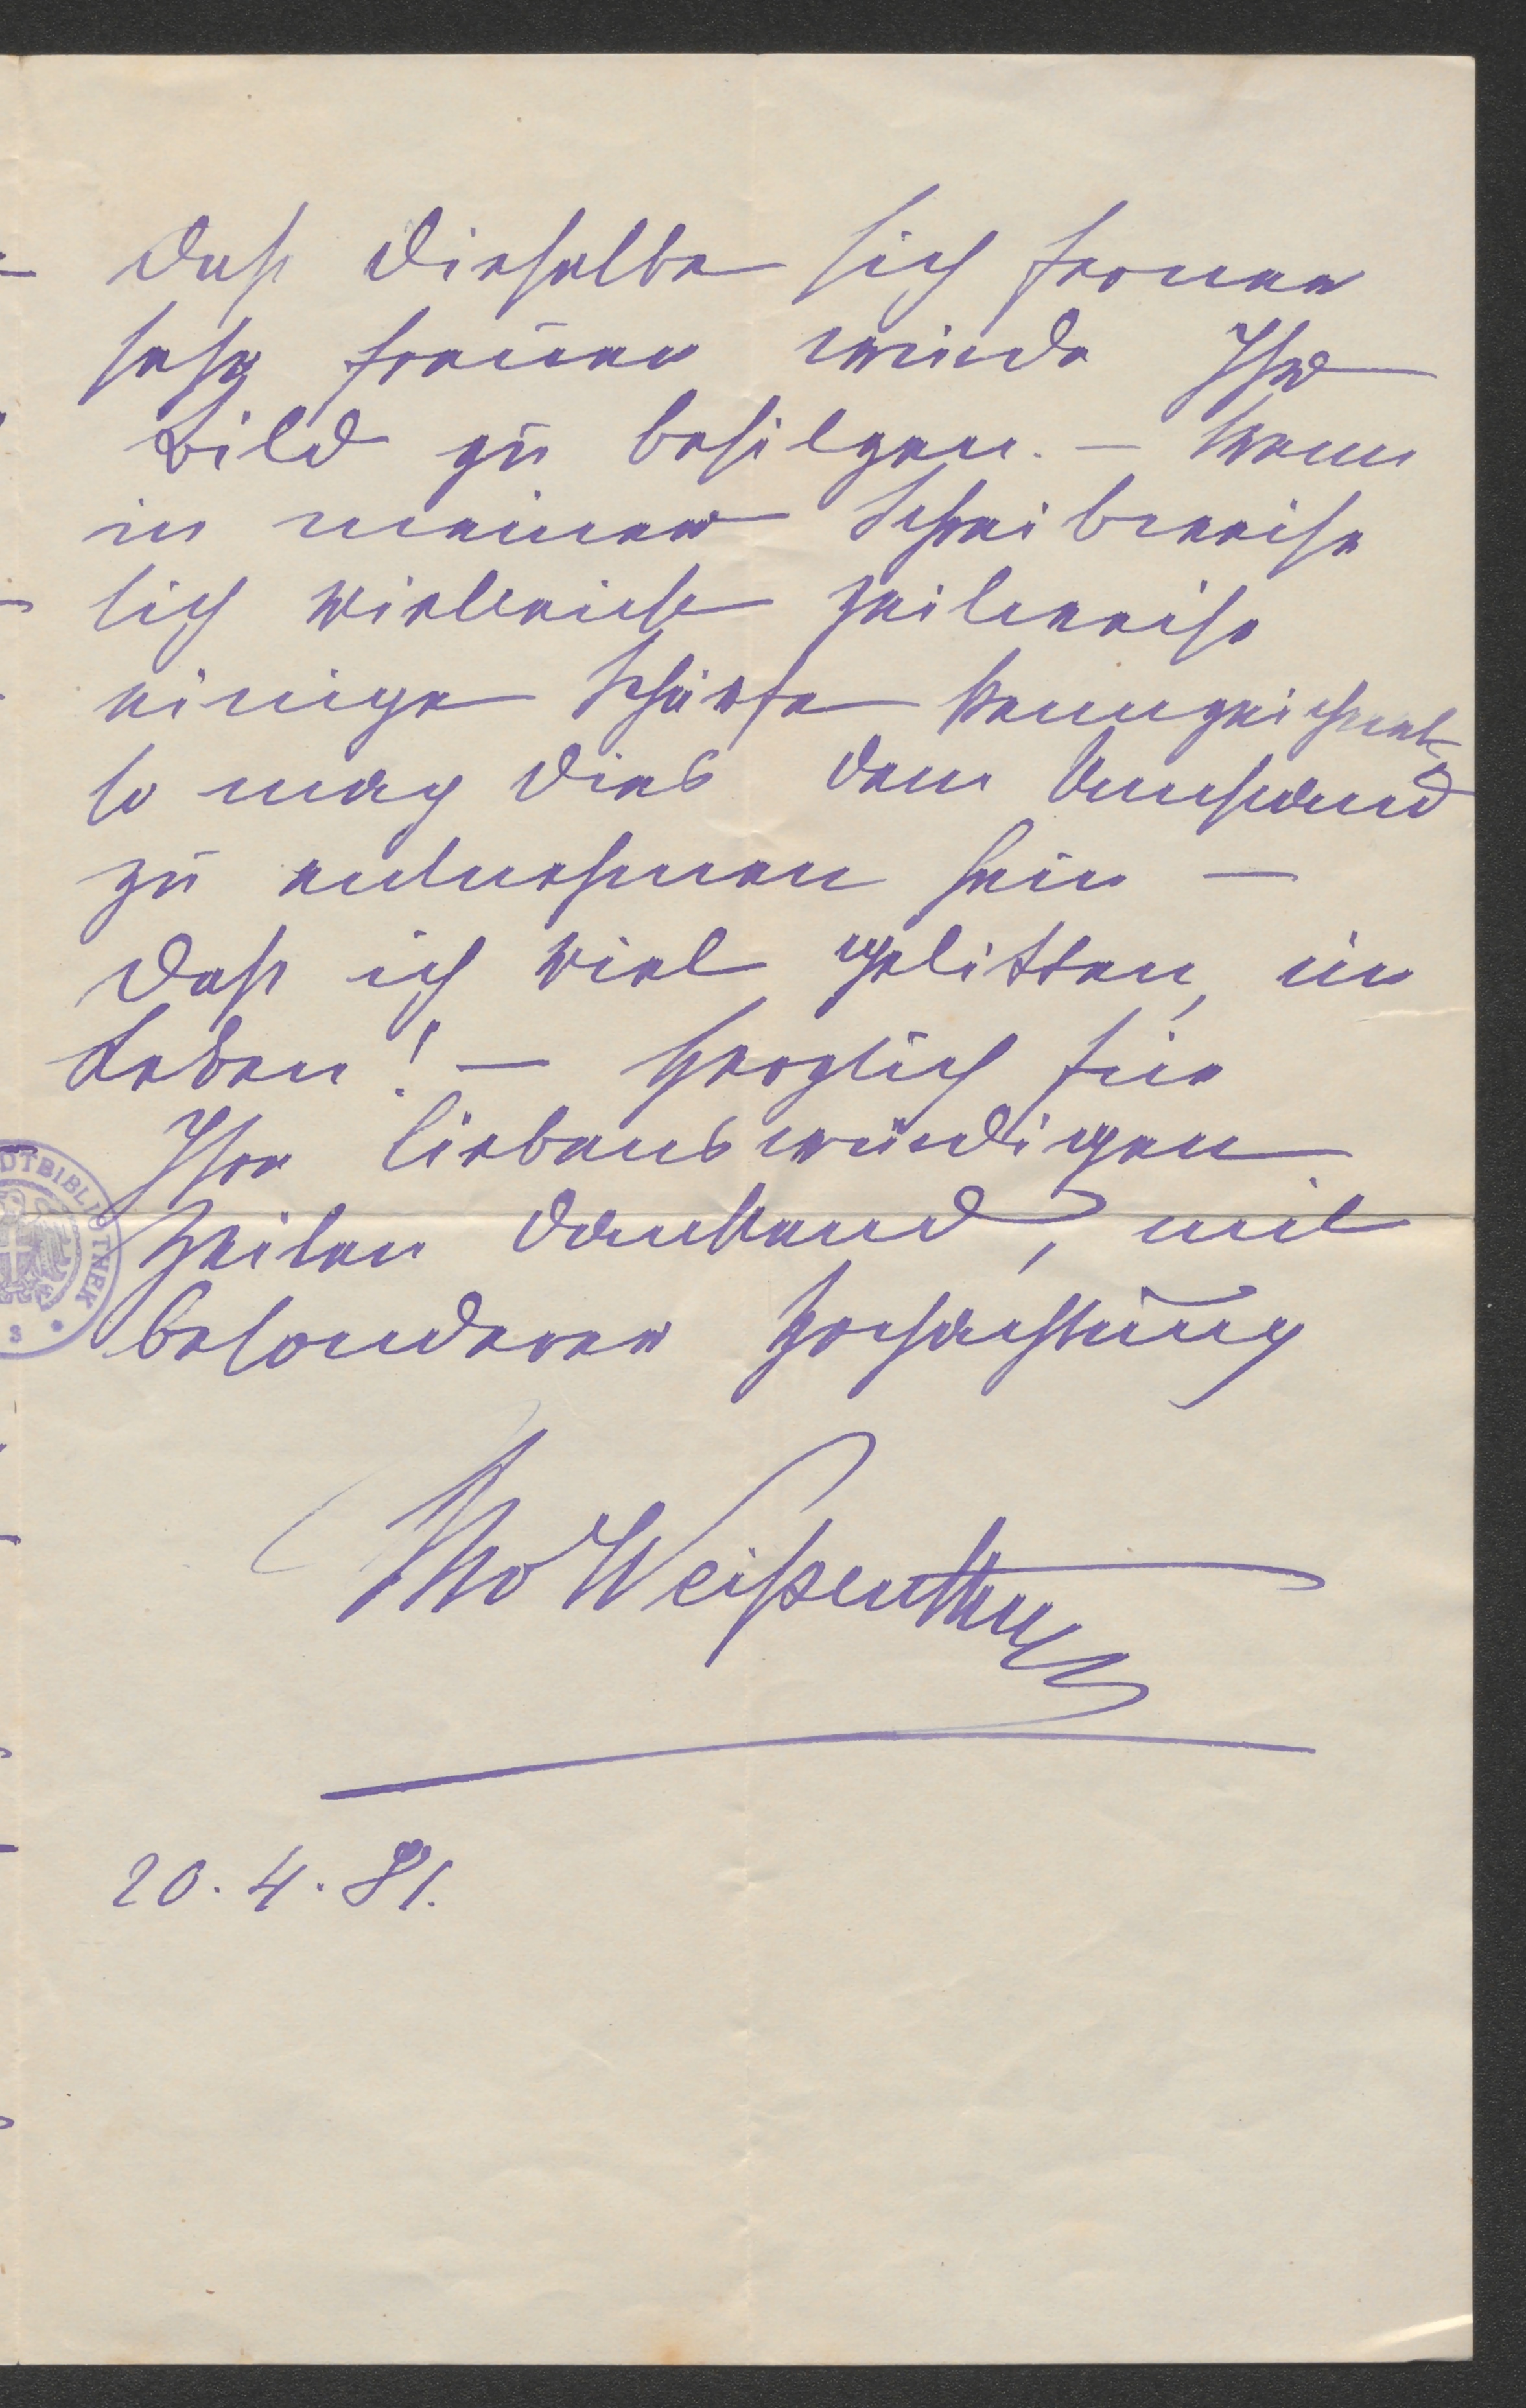 daß dieselbe sich ferner
sehr freuen würde Ihr
Bild zu besitzen. – Wenn
in meiner Schreibweise
sich vielleicht zeilweise
einige Schärfe kennzeichnet,
so mag dies dem Umstand
zu entnehmen sein –
daß ich viel gelitten, im
Leben! – Herzlich für
Ihre liebenswürdigen
Zeilen dankend, mit
besonderer Hochachtung
Weißenthurn
20. 4. 81.
DTBIBLIOTHEK